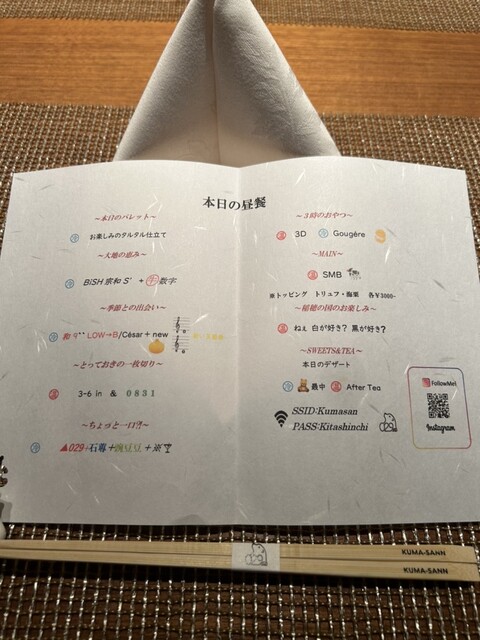 本日の昼餐
～本日のパレット～
冷 お楽しみのタルタル仕立て
～大地の恵み～
冷 BiSH 宗和 S' + 牛 数字
～季節との出会い～
冷 和 LOW→B/César + new
～とっておきの一枚切り～
温 3-6 in & 0831
～ちょっと一口⁈～
冷 ▲029+石蓴+豌豆豆+
～3時のおやつ～
温 3D 冷 Gougère
～MAIN～
温 SMB
※トッピング トリュフ・海栗 各¥3000-
～稲穂の国のお楽しみ～
ねぇ 白が好き? 黒が好き?
～SWEETS&TEA～
本日のデザート
冷 最中 温 After Tea
SSID:Kumasan
PASS:Kitashinchi
FollowMe!
Instagram
KUMA-SANN
KUMA-SANN